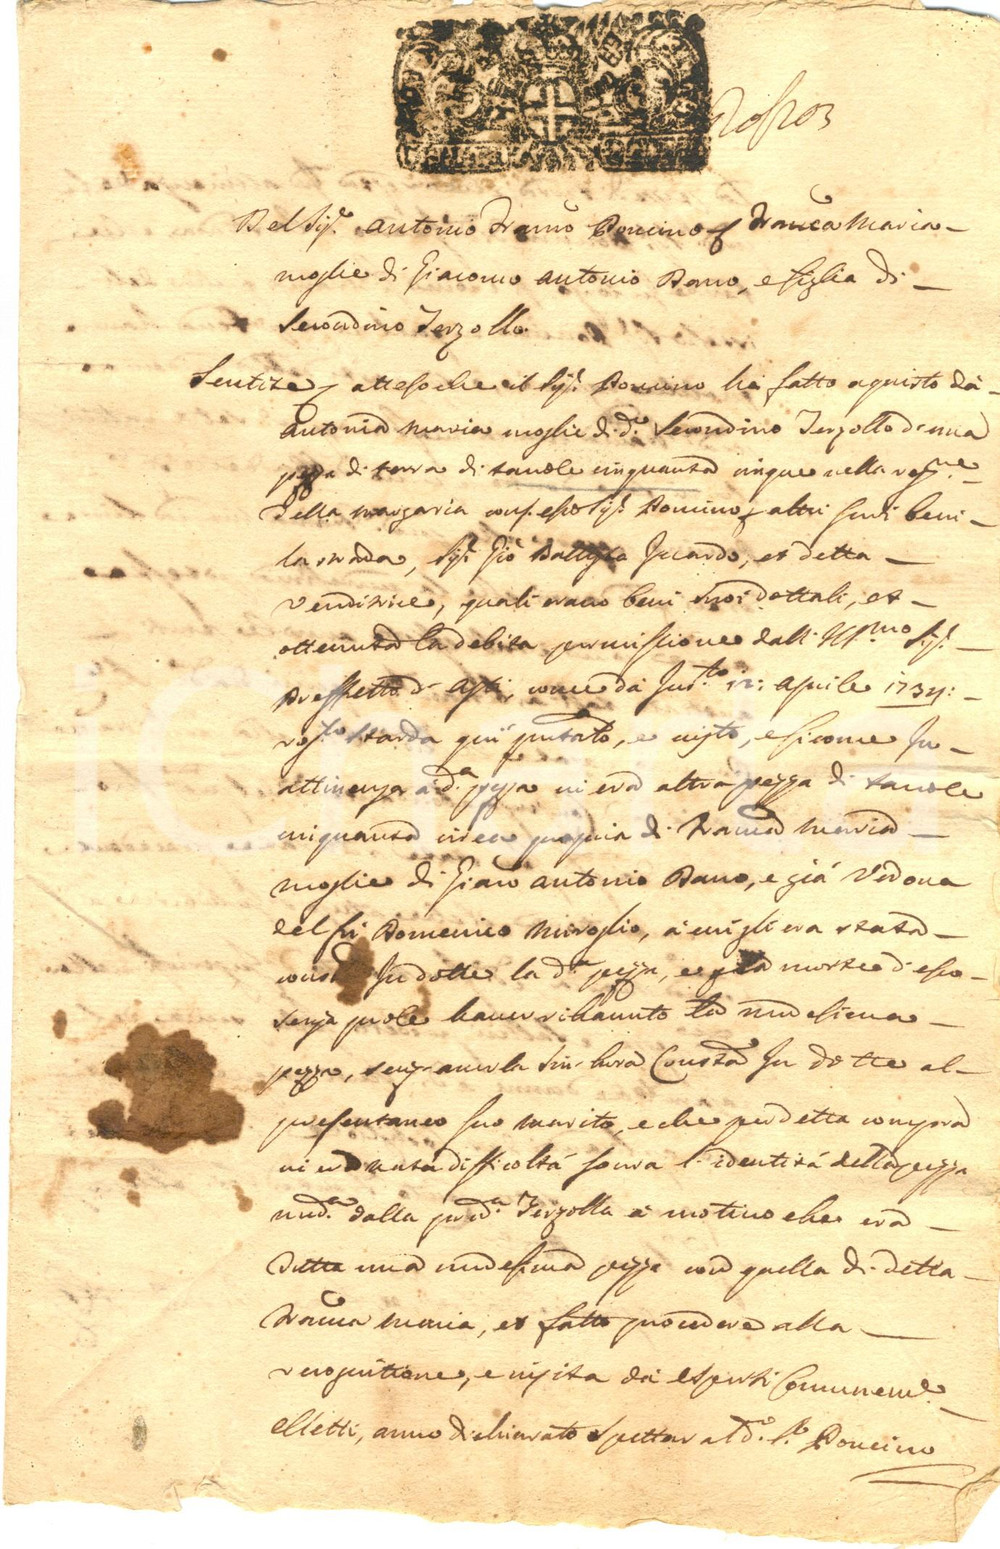 Del Sig.r Antonio Franco Poncino e Franca Maria
moglie di Giacomo Antonio Bano, e figlia di
Secondino Terzollo
Sentite attesoche il Sig.r Poncino ha fatto aquisto da
Antonia Maria moglie di d.o Secondino Terzollo d'una
pezza di terra di tavole cinquanta cinque nella reg.ne
della margaria esso Sig.r Poncino altri suoi beni
la strada, Sig.r Gio Battista et detta
venditrice, quali erano beni suoi dottali, et
ottenuta la debita permissione dall' Ill.mo Sig.r
Prefetto d'Asti, come da Jns.to 12: Aprile 1734:
rog.to e visto, e sicome Jn
attinenza a d.a pezza vi era altra pezza di tavole
cinquanta circa propria di Franca Maria
moglie di Giaco Antonio Bano, e già Vedova
del fu Domenico Miroglio, a cui gli era stata
Jn dotte la d.a pezza, e p la morte d'esso
senza prole haver rihavuto la medesima
pezza, senz'averla sin'hora Const.a Jn dotte al
presentaneo suo marito, e che per detta compra
vi era nata difficoltà sovra l'identità della pezza
vend.a dalla pred.a Terzolla a motivo che era
tutta una medesima pezza con quella di detta
Franca Maria, et fatto procedere alla
recognitione, e visita da esperti Comunem.e
elletti, anno dichiarato spettar al d.o S.r Poncino